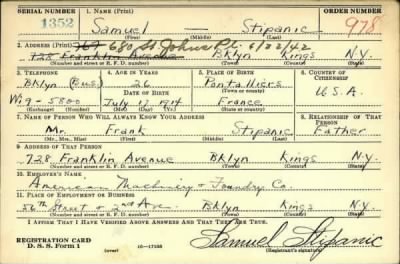 SERIAL NUMBER 1. NAME (Print) ORDER NUMBER
1352 Samuel — Stipanic 978
(First) (Middle) (Last)
2. ADDRESS (Print) 680 St Johns Pl. 6/22/42
728 Franklin Avenue Bklyn Kings N.Y.
(Number and street or R. F. D. number) (Town) (County) (State)
3. TELEPHONE 4. AGE IN YEARS 5. PLACE OF BIRTH 6. COUNTRY OF CITIZENSHIP
Bklyn (Bus.) 26 Pontalliers
DATE OF BIRTH (Town or county) U.S.A.
Wi.9-5800 July 17 1914 France
(Exchange) (Number) (Mo.) (Day) (Yr.) (State or country)
7. NAME OF PERSON WHO WILL ALWAYS KNOW YOUR ADDRESS 8. RELATIONSHIP OF THAT PERSON
Mr. Frank Stipanic Father
(Mr., Mrs., Miss) (First) (Middle) (Last)
9. ADDRESS OF THAT PERSON
728 Franklin Avenue Bklyn Kings N.Y.
(Number and street or R. F. D. number) (Town) (County) (State)
10. EMPLOYER'S NAME
American Machinery & Foundry Co.
11. PLACE OF EMPLOYMENT OR BUSINESS
56th Street & 2nd Ave. Bklyn Kings N.Y.
(Number and street or R. F. D. number) (Town) (County) (State)
I AFFIRM THAT I HAVE VERIFIED ABOVE ANSWERS AND THAT THEY ARE TRUE.
REGISTRATION CARD Samuel Stipanic
D. S. S. Form 1 (over) 16—17105 (Registrant's signature)